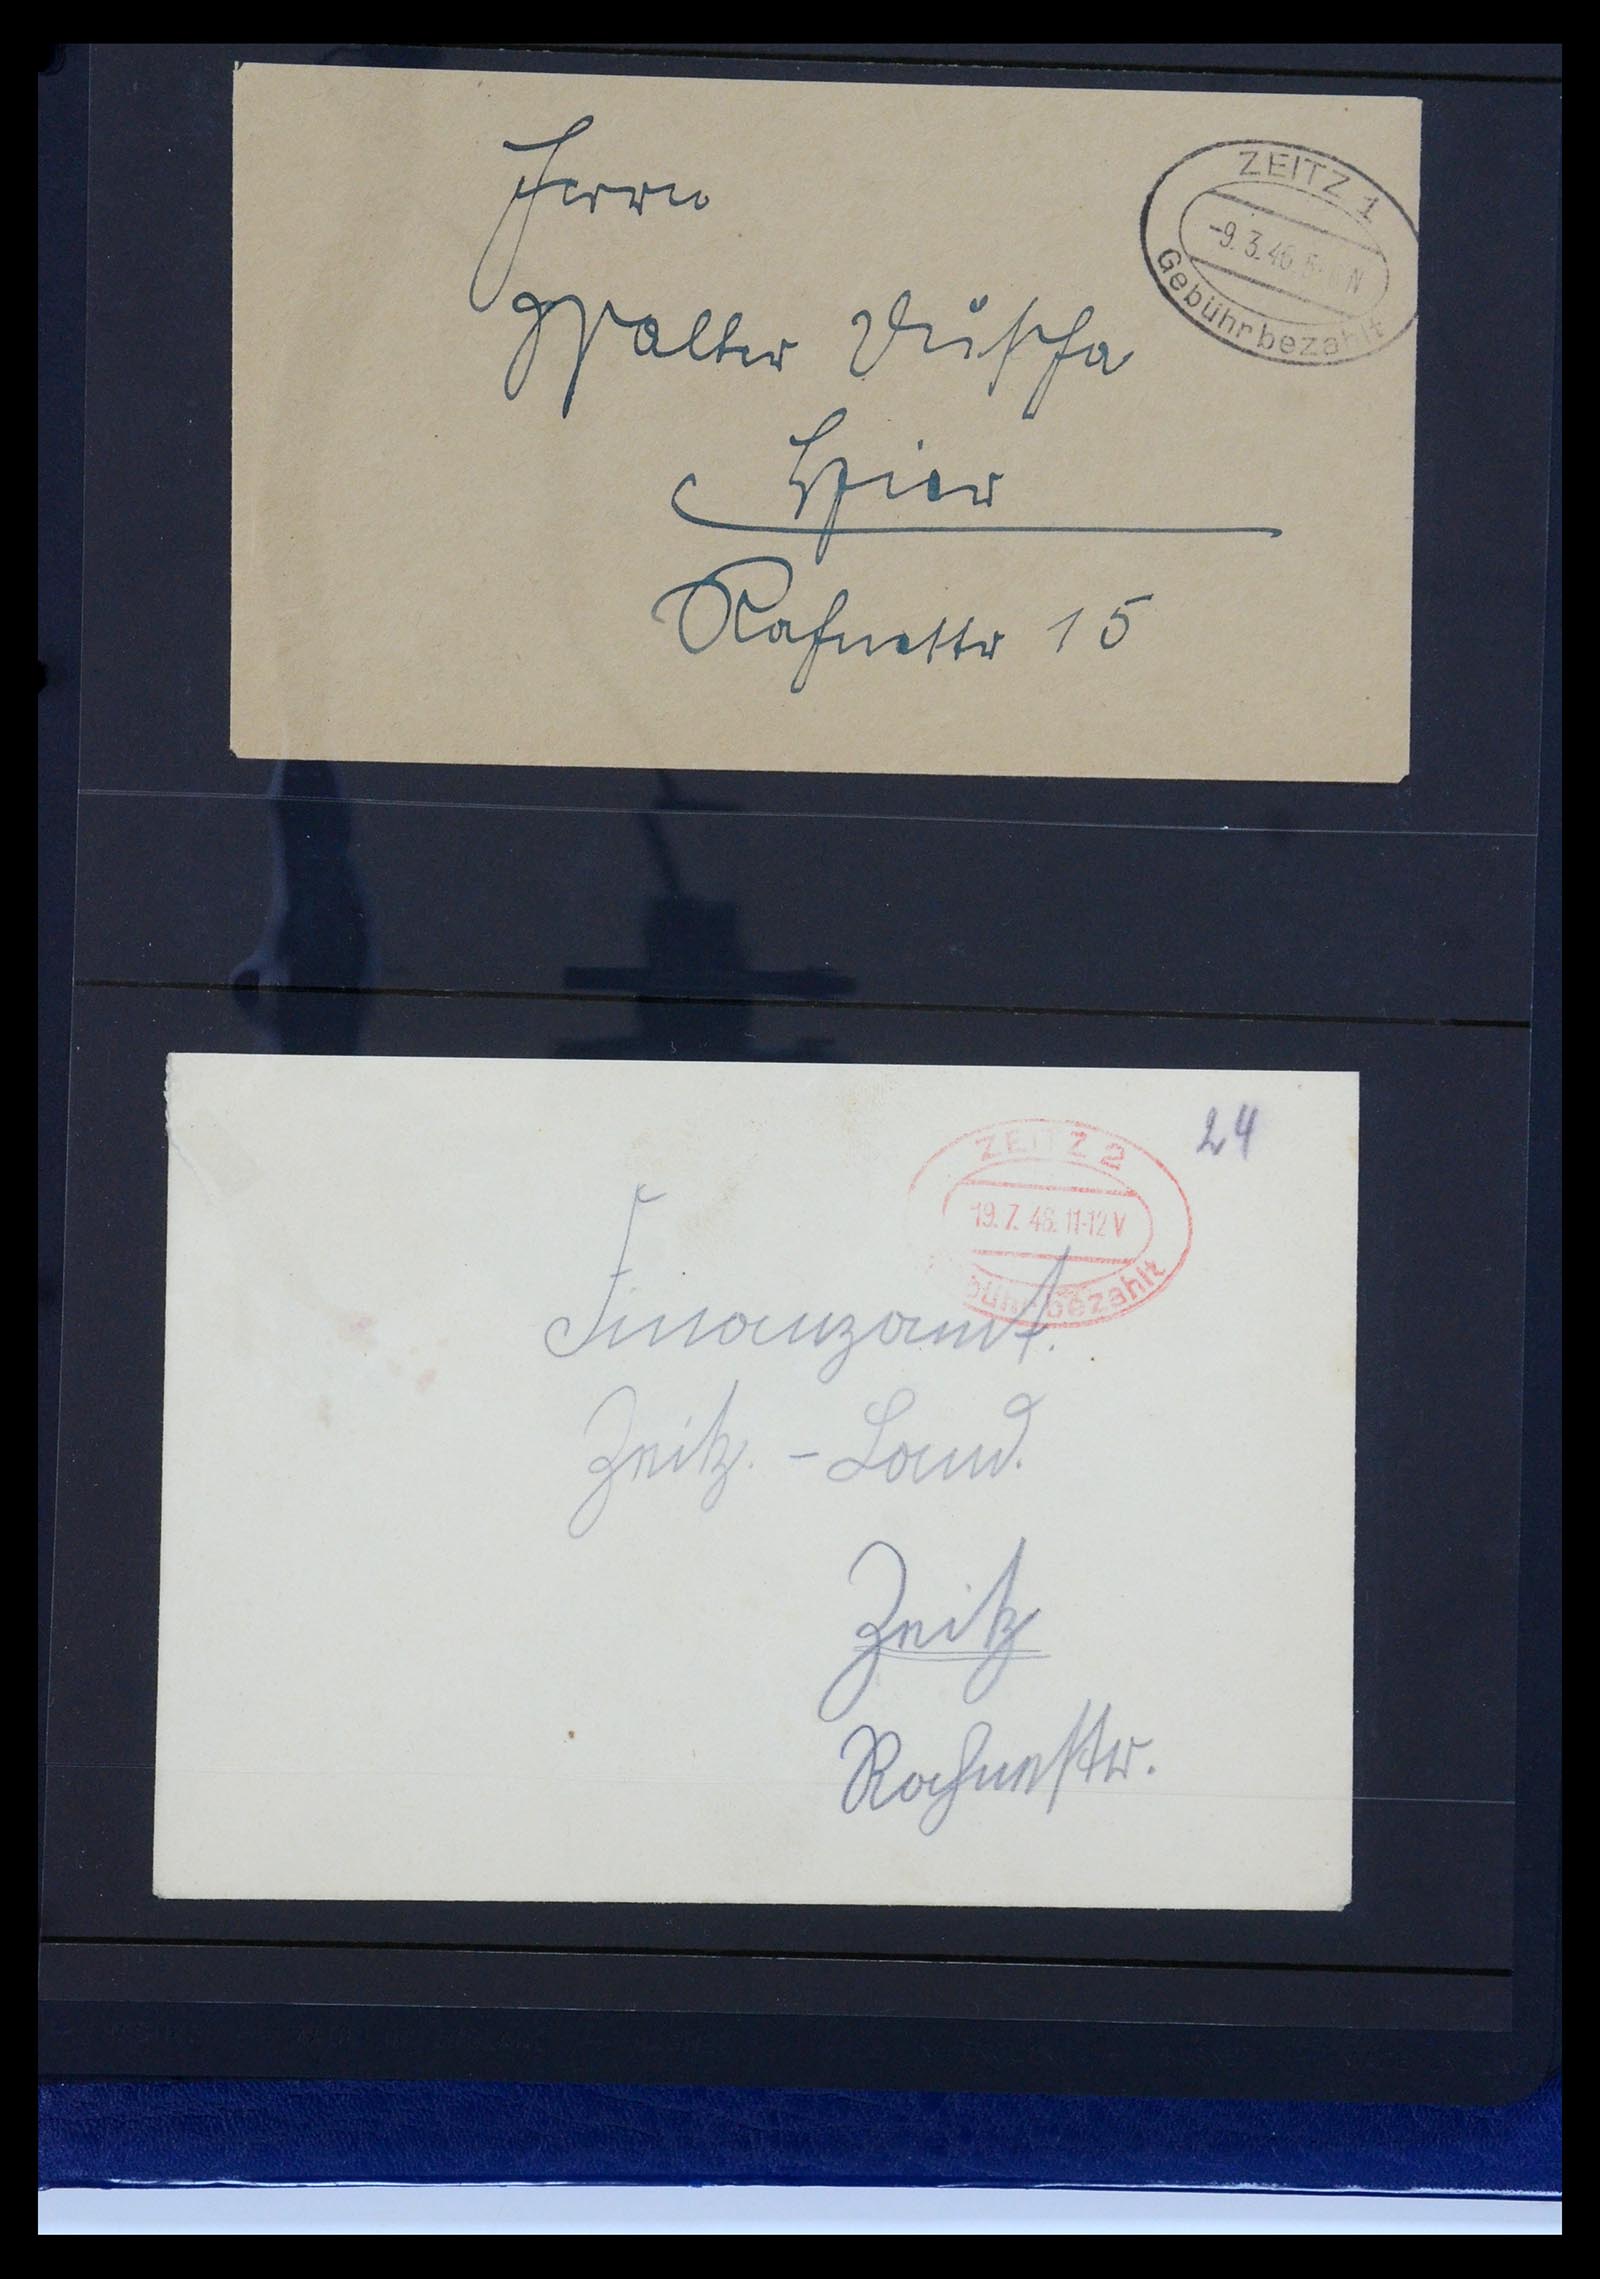 Herrn
ZEITZ 1
-9. 3. 46. 5- N
Gebühr bezahlt
Walter
Hier
Rahnestr 15
24
ZEITZ 2
19. 7. 46. 11-12 V
bühr bezahlt
Finanzamt.
Zeitz. - Land.
Zeitz
Rahnestr.